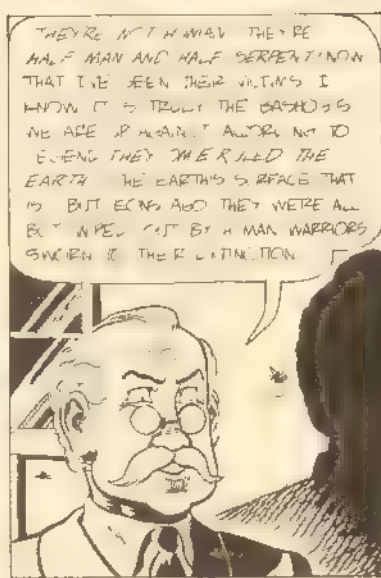 THEY'RE NOT HUMAN THEY'RE
HALF MAN AND HALF SERPENT! NOW
THAT I'VE SEEN THEIR VICTIMS I
KNOW IT IS TRULY THE
WE ARE UP AGAINST ACCORDING TO
LEGEND THEY ONCE RULED THE
EARTH THE EARTH'S SURFACE THAT
IS BUT EONS AGO THEY WERE ALL
BUT WIPED OUT BY HUMAN WARRIORS
SWORN TO THEIR EXTINCTION